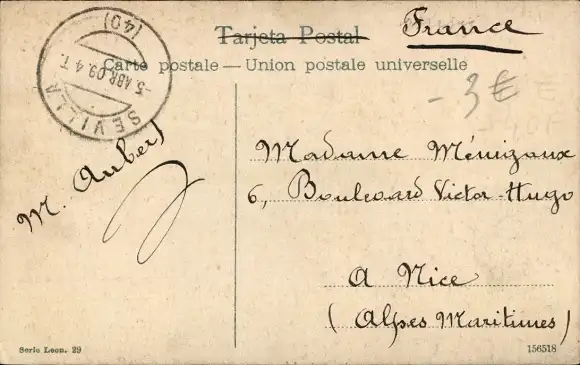 Tarjeta Postal
France
Carte postale — Union postale universelle
SEVILLA
5 ABR. 09. 4 T.
(40)
- 3 €
M. Aubert
Madame Ménizaux
6, Boulevard Victor-Hugo
A Nice
(Alpes Maritimes)
Serie Leon. 29
156518